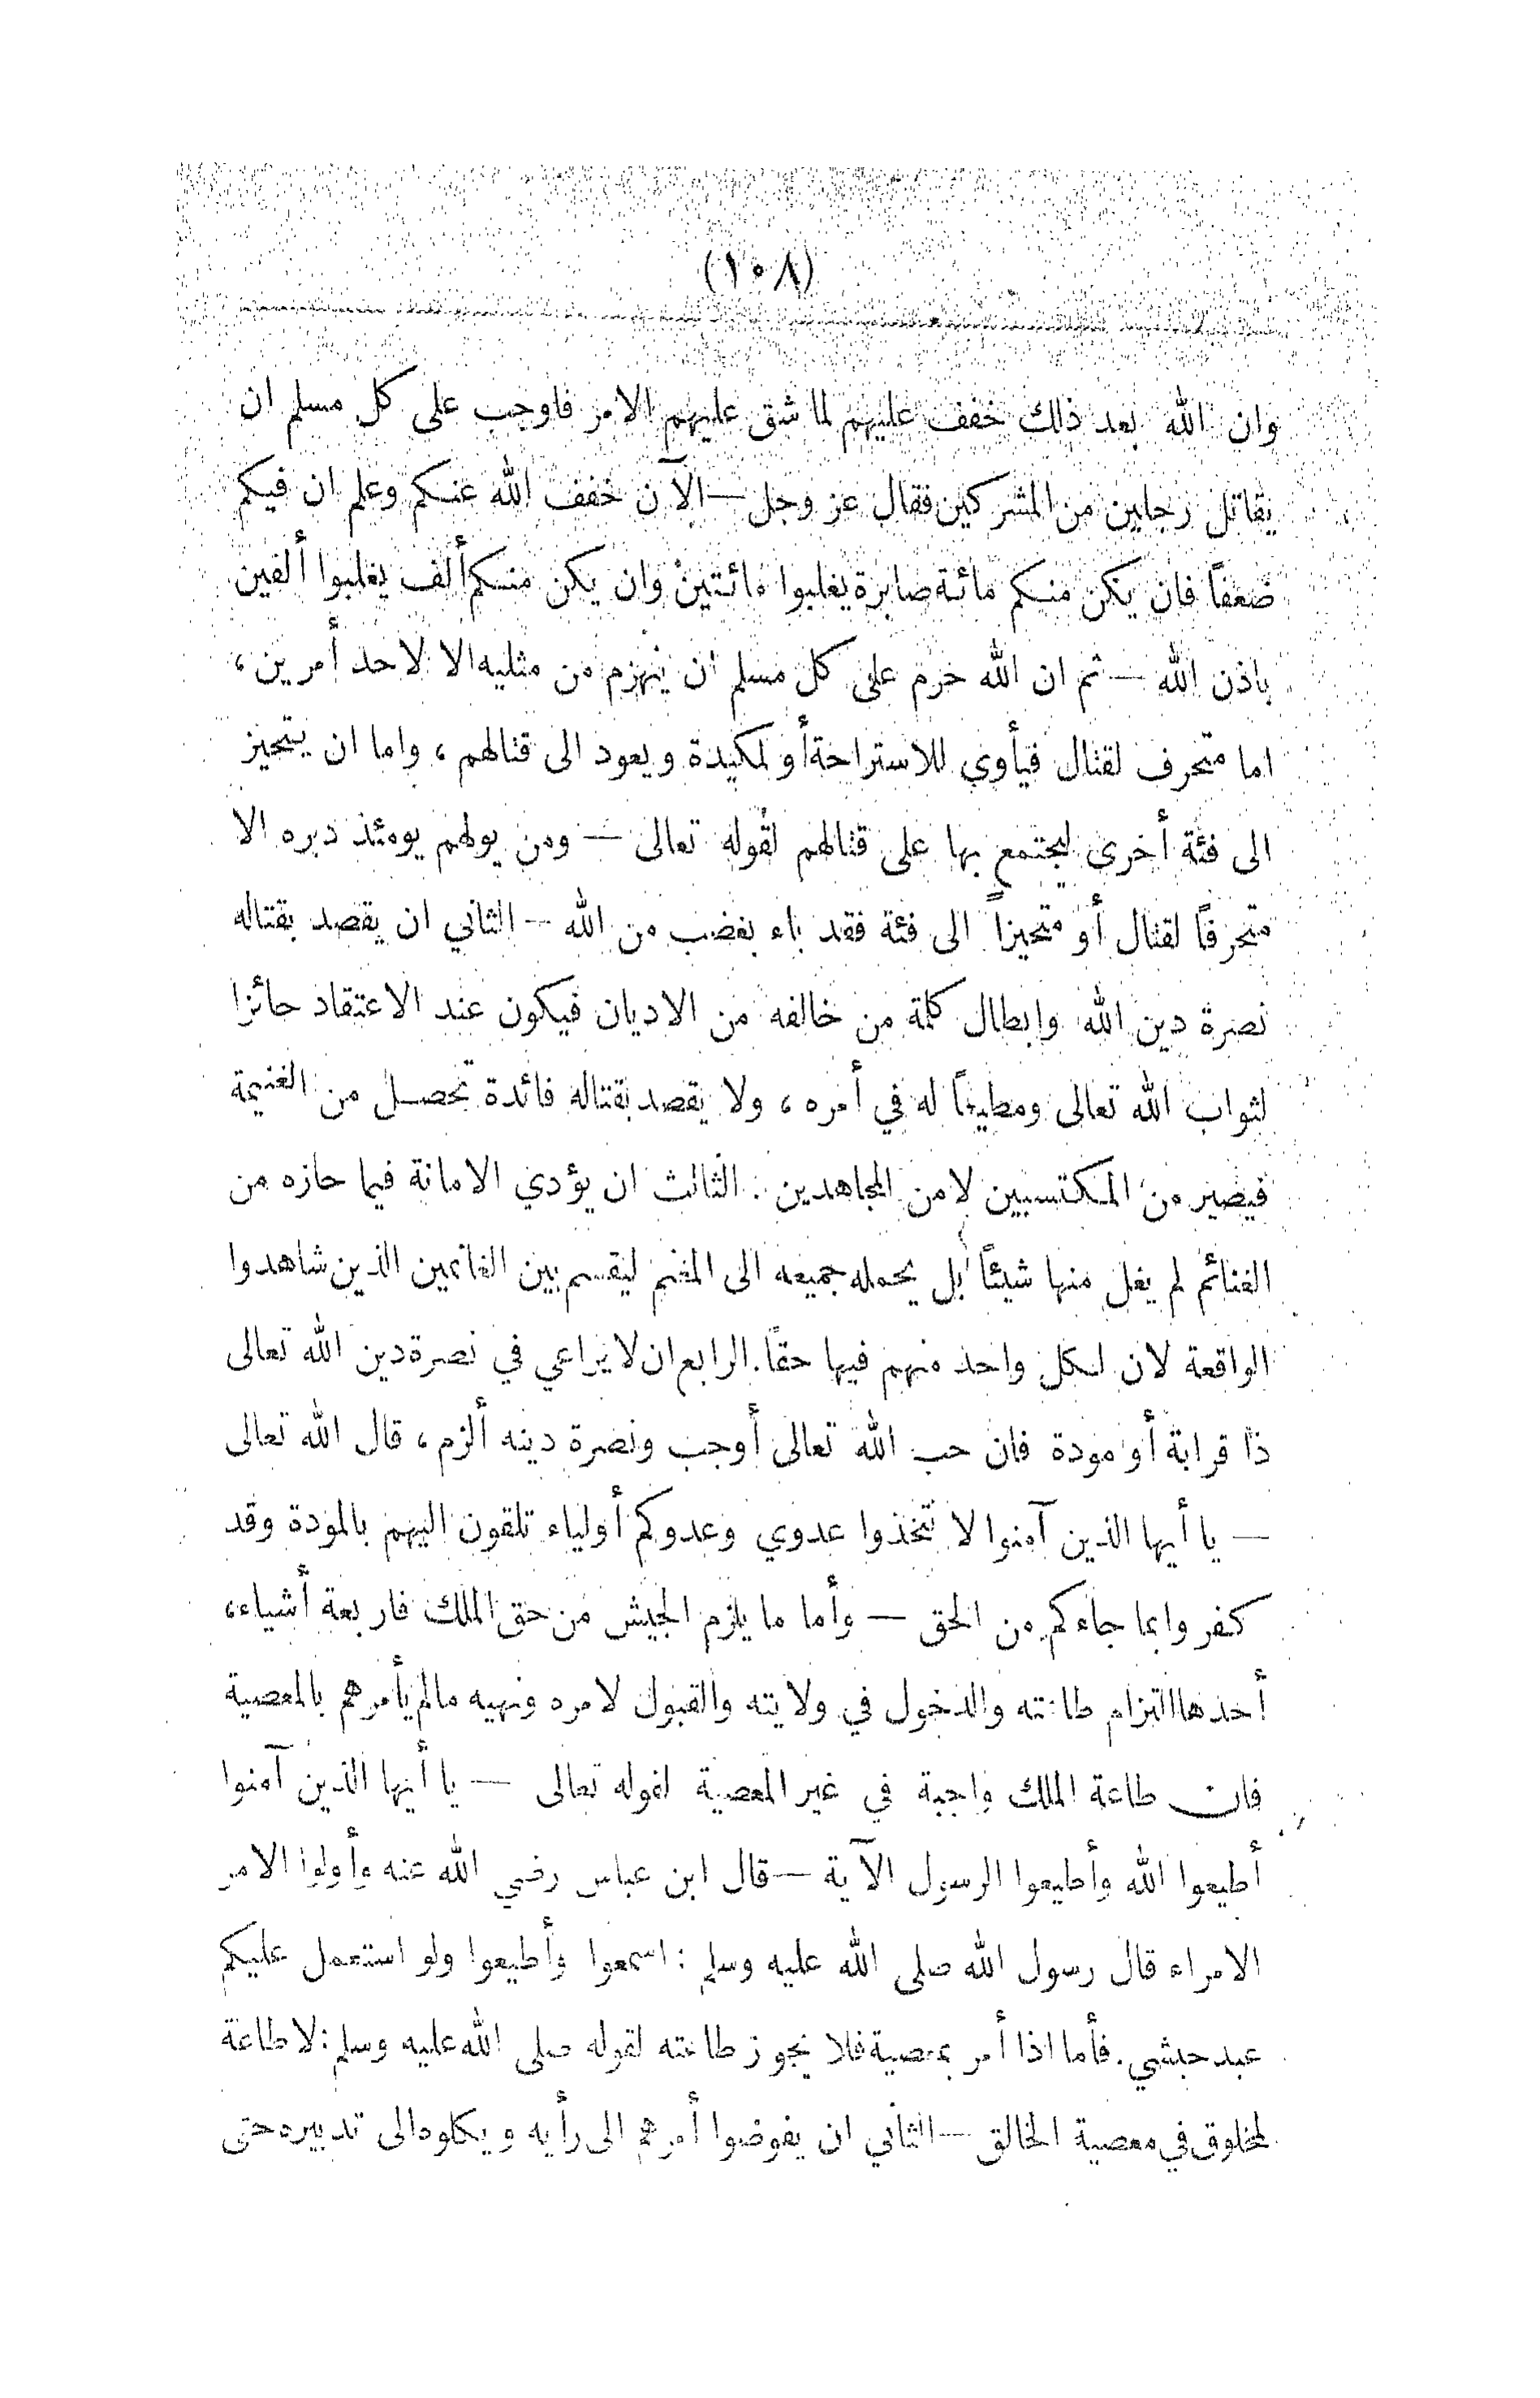 (١٠٨)
وان الله بعد ذلك خفف عليهم لما شق عليهم الامر فاوجب على كل مسلم ان
يقاتل رجلين من المشركين فقال عز وجل — الآن خفف الله عنكم وعلم ان فيكم
ضعفاً فان يكن منكم مائة صابرة يغلبوا مائتين وان يكن منكم ألف يغلبوا ألفين
باذن الله — ثم ان الله حرم على كل مسلم ان ينهزم من مثليه الا لاحد أمرين ،
اما متحرف لقتال فيأوي للاستراحة أو لمكيدة ويعود الى قتالهم ، واما ان يتحيز
الى فئة أخرى ليجتمع بها على قتالهم لقوله تعالى — ومن يولهم يومئذ دبره الا
متحرفاً لقتال أو متحيزاً الى فئة فقد باء بغضب من الله — الثاني ان يقصد بقتاله
نصرة دين الله وابطال كلمة من خالفه من الاديان فيكون عند الاعتقاد حائزا
لثواب الله تعالى ومطيعاً له في أمره ، ولا يقصد بقتاله فائدة تحصل من الغنيمة
فيصير من المكتسبين لا من المجاهدين . الثالث ان يؤدي الامانة فيما حازه من
الغنائم لم يغل منها شيئاً بل يحمله جميعه الى المغنم ليقسم بين الغانمين الذين شاهدوا
الواقعة لان لكل واحد منهم فيها حقاً . الرابع ان لا يراعي في نصرة دين الله تعالى
ذا قرابة أو مودة فان حب الله تعالى أوجب ونصرة دينه ألزم ، قال الله تعالى
— يا أيها الذين آمنوا لا تتخذوا عدوي وعدوكم أولياء تلقون اليهم بالمودة وقد
كفروا بما جاءكم من الحق — وأما ما يلزم الجيش من حق الملك فاربعة أشياء ،
أحدها التزام طاعته والدخول في ولايته والقبول لامره ونهيه مالم يأمرهم بالمعصية
فان طاعة الملك واجبة في غير المعصية لقوله تعالى — يا أيها الذين آمنوا
أطيعوا الله وأطيعوا الرسول الآية — قال ابن عباس رضي الله عنه وأولوا الامر
الامراء قال رسول الله صلى الله عليه وسلم : اسمعوا وأطيعوا ولو استعمل عليكم
عبد حبشي . فأما اذا أمر بمعصية فلا يجوز طاعته لقوله صلى الله عليه وسلم : لا طاعة
لمخلوق في معصية الخالق — الثاني ان يفوضوا أمرهم الى رأيه ويكلوه الى تدبيره حتى